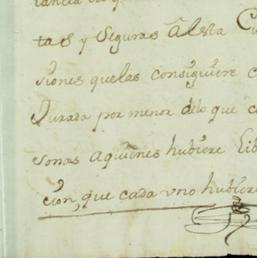 tas y Seguras â esta
siones quelas consiguiere
Jurada por menor delo que
sonas aquienes hubiere
cion, que cada uno hubiere